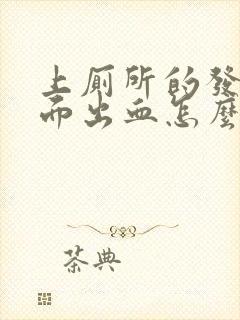 上厕所的發
而出血怎麼
茶典